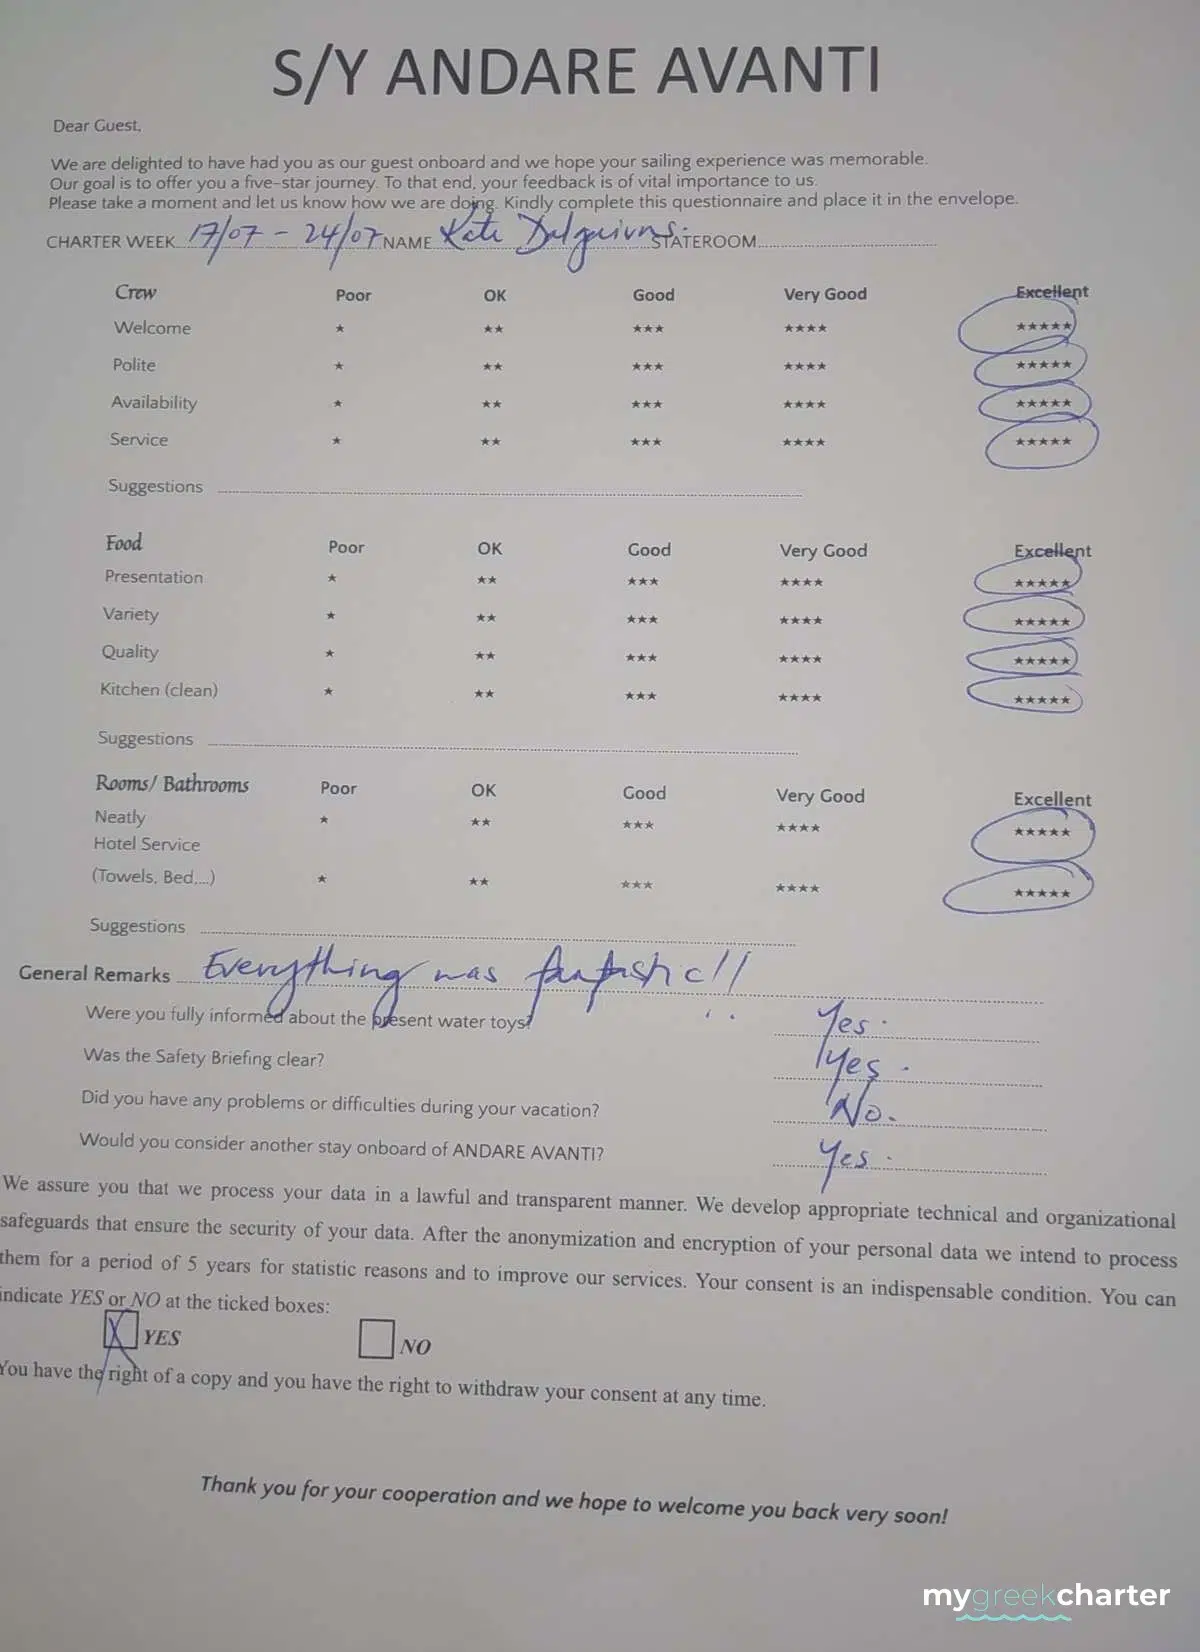 S/Y ANDARE AVANTI
Dear Guest,
We are delighted to have had you as our guest onboard and we hope your sailing experience was memorable.
Our goal is to offer you a five-star journey. To that end, your feedback is of vital importance to us.
Please take a moment and let us know how we are doing. Kindly complete this questionnaire and place it in the envelope.
CHARTER WEEK 17/07 - 24/07 NAME Kate STATEROOM
Crew Poor OK Good Very Good Excellent
Welcome ★ ★★ ★★★ ★★★★ ★★★★★
Polite ★ ★★ ★★★ ★★★★ ★★★★★
Availability ★ ★★ ★★★ ★★★★ ★★★★★
Service ★ ★★ ★★★ ★★★★ ★★★★★
Suggestions
Food Poor OK Good Very Good Excellent
Presentation ★ ★★ ★★★ ★★★★ ★★★★★
Variety ★ ★★ ★★★ ★★★★ ★★★★★
Quality ★ ★★ ★★★ ★★★★ ★★★★★
Kitchen (clean) ★ ★★ ★★★ ★★★★ ★★★★★
Suggestions
Rooms/ Bathrooms Poor OK Good Very Good Excellent
Neatly ★ ★★ ★★★ ★★★★ ★★★★★
Hotel Service
(Towels, Bed,...) ★ ★★ ★★★ ★★★★ ★★★★★
Suggestions
General Remarks Everything was fantastic!!
Were you fully informed about the present water toys? Yes.
Was the Safety Briefing clear? Yes.
Did you have any problems or difficulties during your vacation? No.
Would you consider another stay onboard of ANDARE AVANTI? Yes.
We assure you that we process your data in a lawful and transparent manner. We develop appropriate technical and organizational
safeguards that ensure the security of your data. After the anonymization and encryption of your personal data we intend to process
them for a period of 5 years for statistic reasons and to improve our services. Your consent is an indispensable condition. You can
indicate YES or NO at the ticked boxes:
X YES NO
You have the right of a copy and you have the right to withdraw your consent at any time.
Thank you for your cooperation and we hope to welcome you back very soon!
mygreekcharter